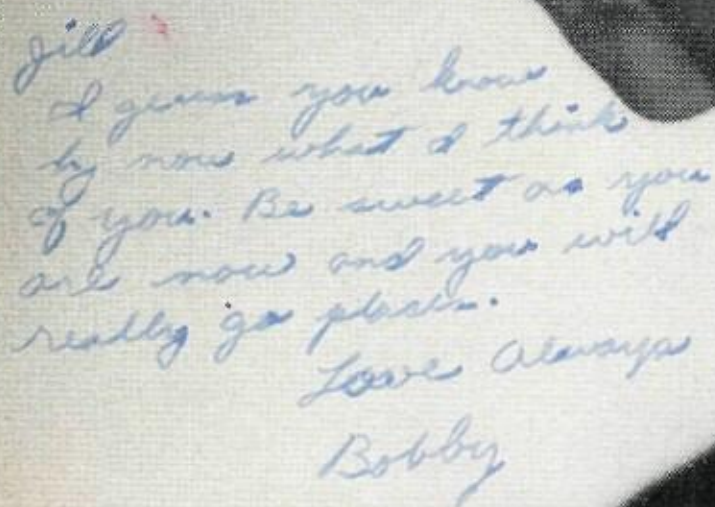 Jill
I guess you know
by now what I think
of you. Be sweet as you
are now and you will
really go places.
Love Always
Bobby